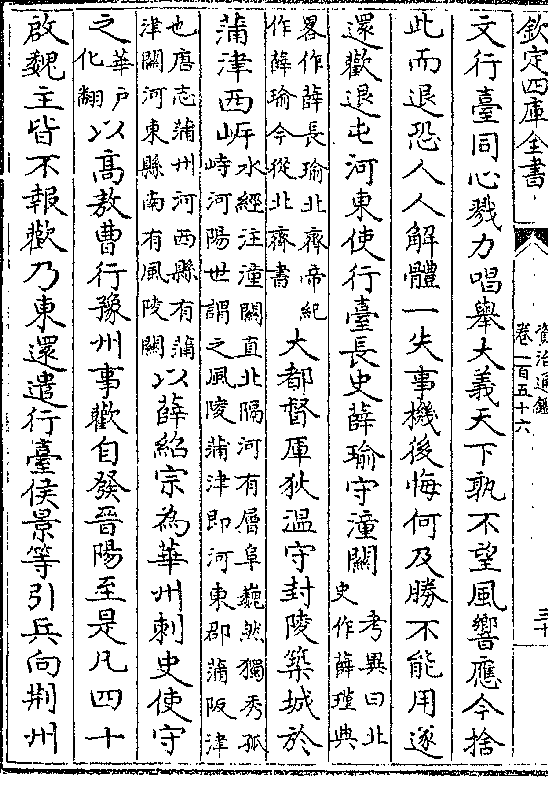 欽定四庫全書
資治通鑑
卷一百五十六
三十
文行臺同心戮力唱舉大義天下孰不望風響應今捨
此而退恐人人解體一失事機後悔何及勝不能用遂
還歡退屯河東使行臺長史薛瑜守潼關考異曰北
史作薛瑾典
畧作薛長瑜北齊帝紀
作薛瑜今從北齊書大都督厙狄温守封陵築城於
蒲津西㟁水經注潼關直北隔河有層阜巍然獨秀孤
峙河陽世謂之風陵蒲津即河東郡蒲阪津
也唐志蒲州河西縣有蒲
津關河東縣南有風陵關以薛紹宗為華州刺史使守
之華户
化翻以高敖曹行豫州事歡自發晉陽至是凡四十
啟魏主皆不報歡乃東還遣行臺侯景等引兵向荆州